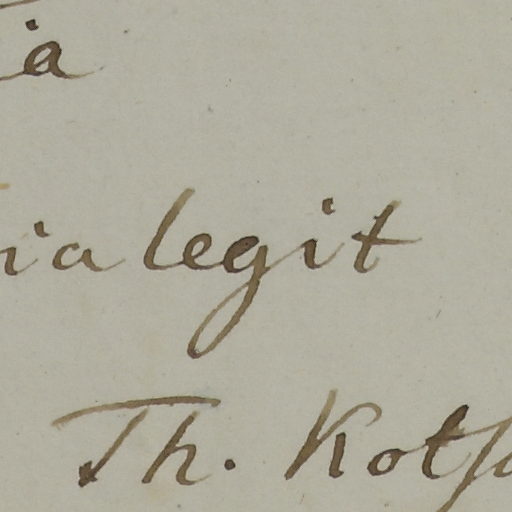 ia
ia legit
Th. Kotsc